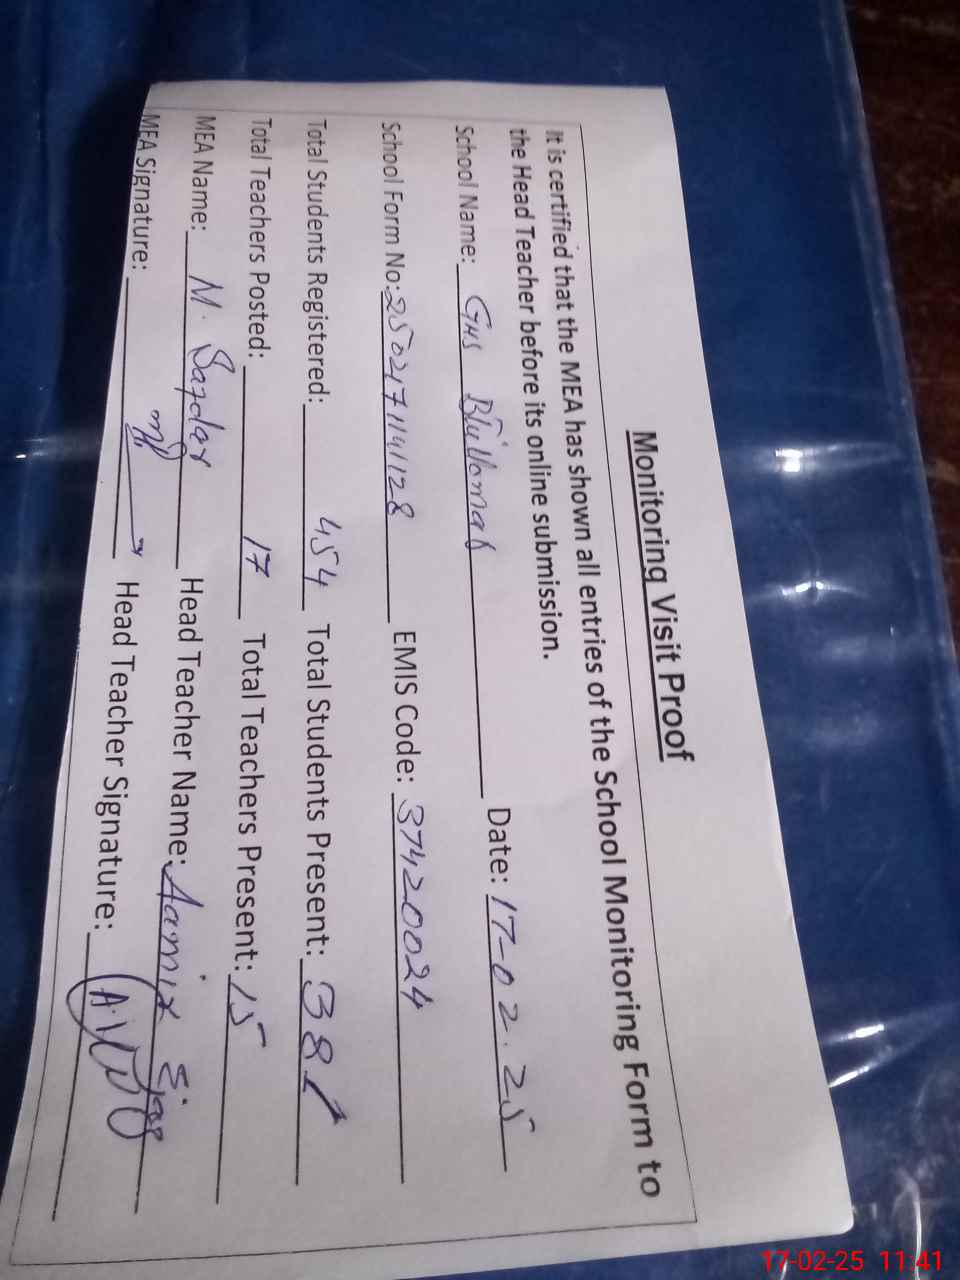 Monitoring Visit Proof
It is certified that the MEA has shown all entries of the School Monitoring Form to
the Head Teacher before its online submission.
School Name: GHS Date: 17-02-25
School Form No: EMIS Code: 37420024
Total Students Registered: 454 Total Students Present: 381
Total Teachers Posted: 17 Total Teachers Present: 15
MEA Name: M. Safdar Head Teacher Name: Aamir Ejaz
MEA Signature: Head Teacher Signature:
17-02-25 11:41